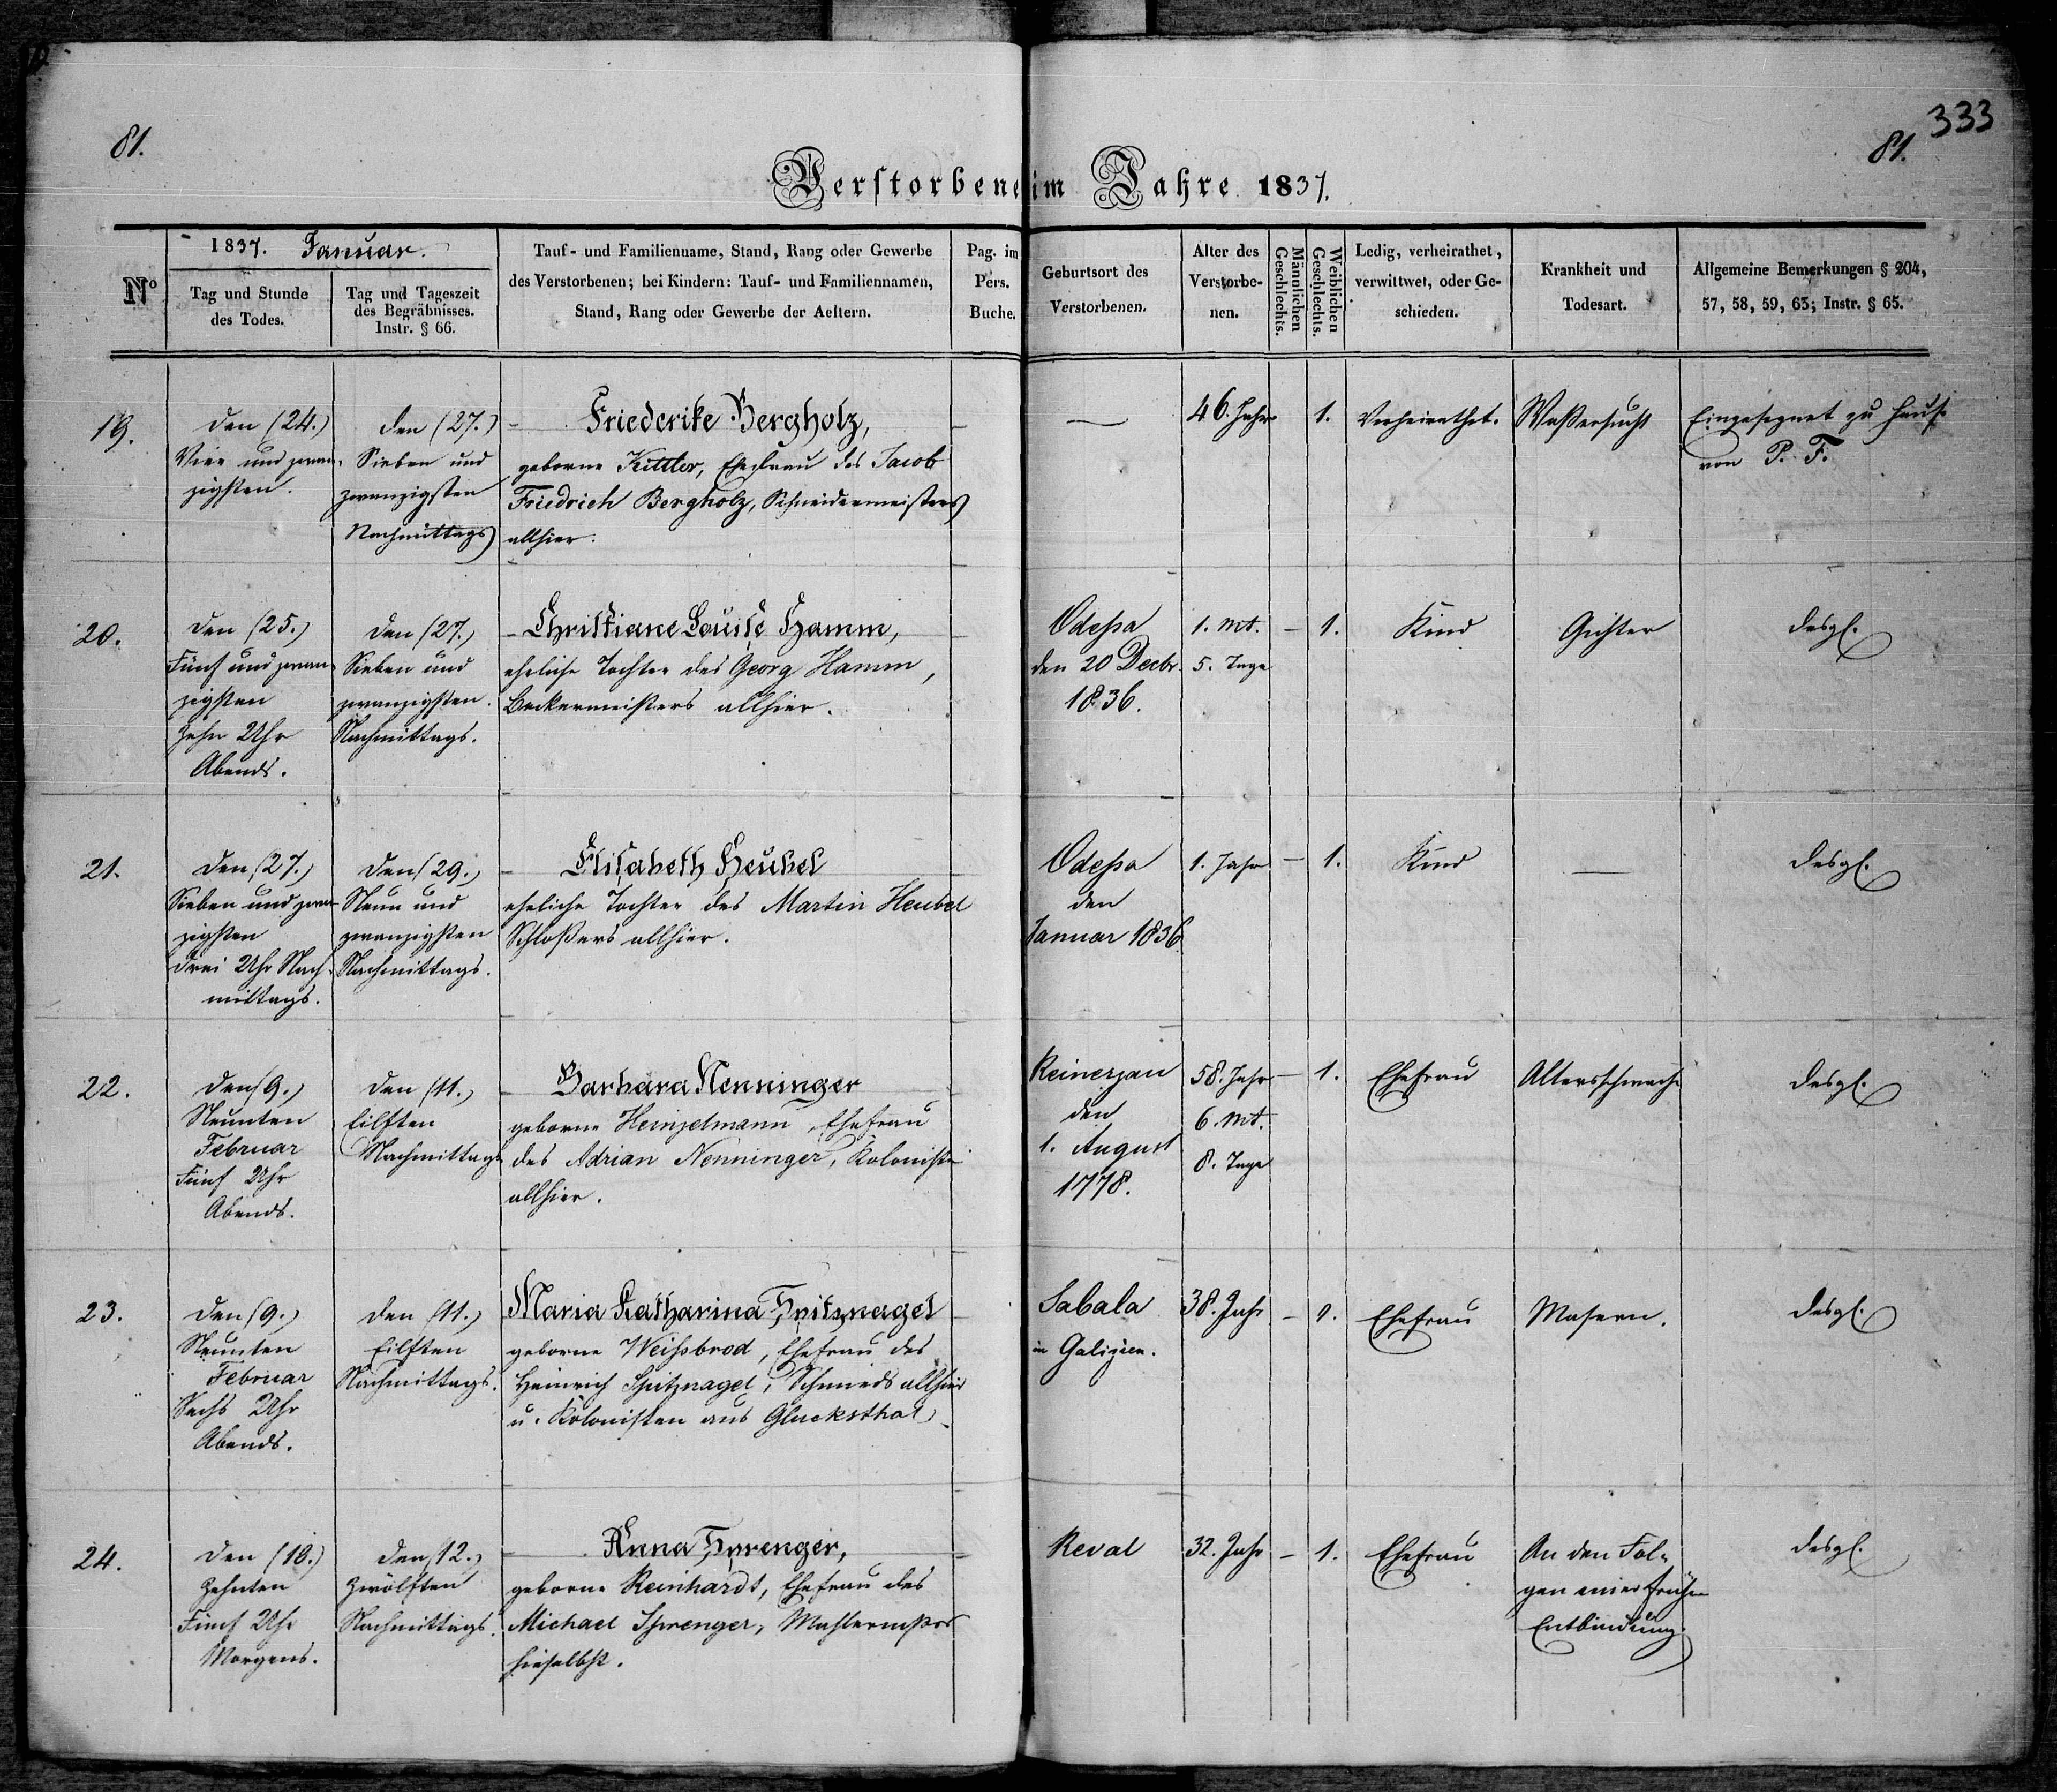 81.
333
81.
Verstorbene im Jahre 1837.
No
1837. Januar.
Tag und Stunde
des Todes.
Tag und Tageszeit
des Begräbnisses.
Instr. § 66.
Tauf- und Familienname, Stand, Rang oder Gewerbe
des Verstorbenen; bei Kindern: Tauf- und Familiennamen,
Stand, Rang oder Gewerbe der Aeltern.
Pag. im
Pers.
Buche.
Geburtsort des
Verstorbenen.
Alter des
Verstorbe-
nen.
Männlichen
Geschlechts.
Weiblichen
Geschlechts.
Ledig, verheirathet,
verwittwet, oder Ge-
schieden.
Krankheit und
Todesart.
Allgemeine Bemerkungen § 204,
57, 58, 59, 63; Instr. § 65.
19.
den (24.)
Vier und zwan-
zigsten.
den (27.)
Sieben und
zwanzigsten
Nachmittags
Friederike Bergholz,
geborne Kittler, Ehefrau des Jacob
Friedrich Bergholz, Schneidermeisters
allhier.
—
46. Jahr
1.
Verheirathet.
Waßersucht
Eingesegnet zu Hause
von P. F.
20.
den (25.)
Fünf und zwan-
zigsten
Zehn Uhr
Abends.
den (27.)
Sieben und
zwanzigsten.
Nachmittags.
Christiane Louise Hamm,
eheliche Tochter des Georg Hamm,
Beckermeisters allhier.
Odessa
den 20 Decbr.
1836.
1. Mt.
5. Tage
–
1.
Kind
Gichter
desgl.
21.
den (27.)
Sieben und zwan-
zigsten
drei Uhr Nach-
mittags.
den (29.)
Neun und
zwanzigsten
Nachmittags.
Elisabeth Heubel
eheliche Tochter des Martin Heubel
Schloßers allhier.
Odessa
den
Januar 1836.
1. Jahr
–
1.
Kind
—
desgl.
22.
den (9.)
Neunten
Februar
Fünf Uhr
Abends.
den (11.)
Eilften
Nachmittags
Barbara Nenninger
geborne Heinzelmann, Ehefrau
des Adrian Nenninger, Koloniste
allhier.
Reinerzau
den
1. August
1778.
58. Jahr
6. Mt.
8. Tage
–
1.
Ehefrau
Altersschwäche
desgl.
23.
den (9.)
Neunten
Februar
Sechs Uhr
Abends.
den (11.)
Eilften
Nachmittags.
Maria Katharina Spitznagel
geborne Weihsbrod, Ehefrau des
Heinrich Spitznagel, Schmieds allhier
u. Kolonisten aus Glucksthal
Sabala
in Galizien.
38. Jahr
–
1.
Ehefrau
Masern.
desgl.
24.
den (10.)
Zehnten
Fünf Uhr
Morgens.
den (12.)
Zwölften
Nachmittags.
Anna Sprenger,
geborne Reinhardt, Ehefrau des
Michael Sprenger,
hieselbst.
Reval
32. Jahr
–
1.
Ehefrau
An den Fol-
gen einer frühen
Entbindung.
desgl.